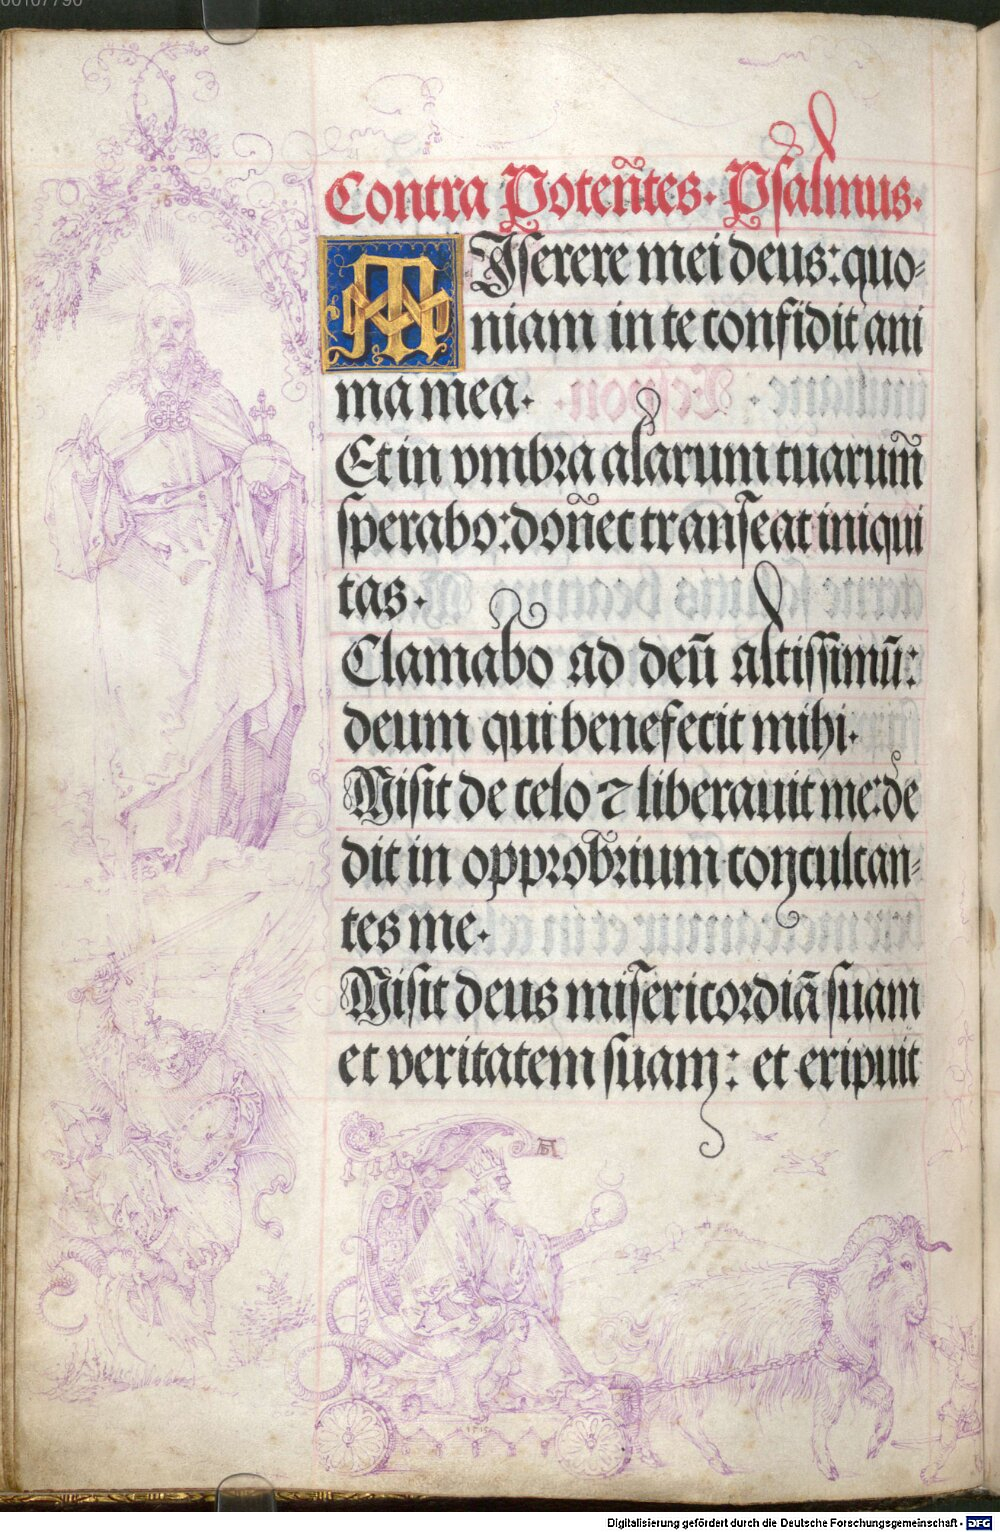 00107790
Contra Poten̄tes. Psalmus.
MIserere mei deus: quo-
niam in te confidit ani
ma mea.
Et in vmbra alarum tuarum̄
sperabo: don̄ec transeat iniqui
tas.
Clamabo ad deū altissimū:
deum qui benefecit mihi.
Misit de celo ⁊ liberauit me: de
dit in opprobrium conculcan-
tes me.
Misit deus misericordiā suam
et veritatem suam: et eripuit
AD
Digitalisierung gefördert durch die Deutsche Forschungsgemeinschaft - DFG